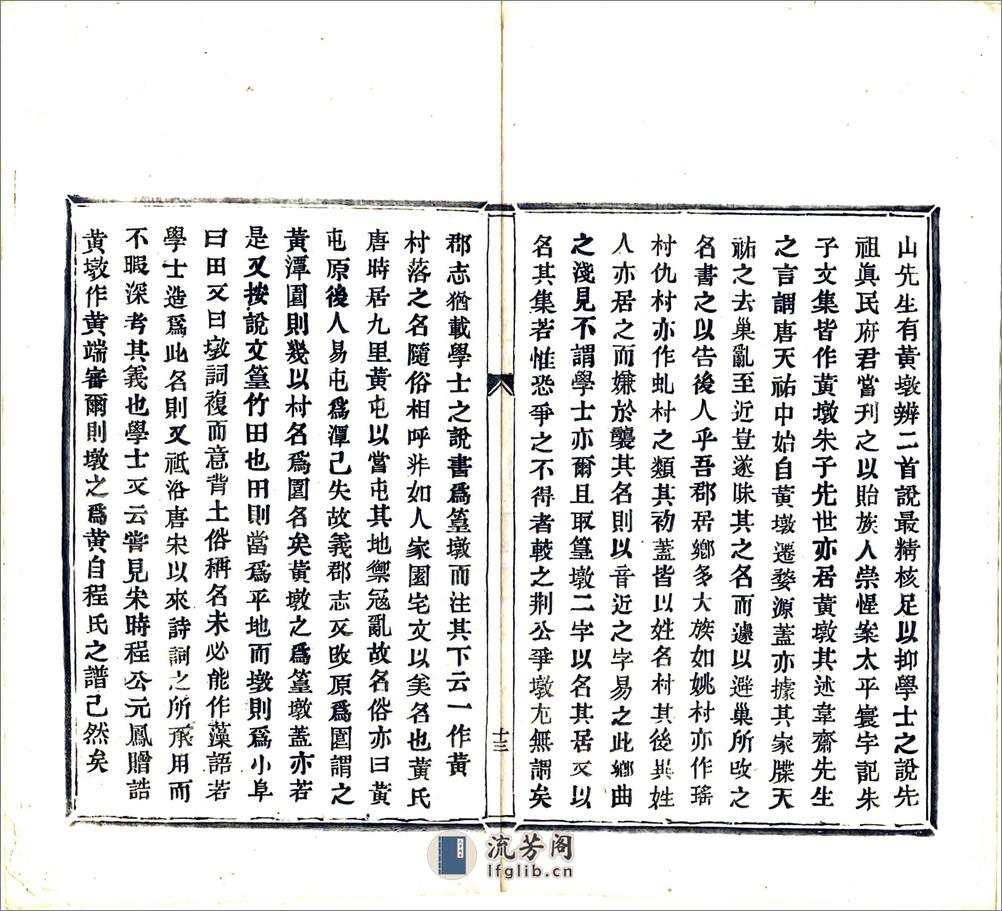 山先生有黃墩辨二首說最精核足以抑學士之說先
祖眞民府君當刊之以貽族人崇惺案太平寰宇記朱
子文集皆作黃墩朱子先世亦居黃墩其述韋齋先生
之言謂唐天祐中始自黃墩遷婺源蓋亦據其家牒天
祐之去巢亂至近豈遂昧其之名而遽以避巢所攺之
名書之以告後人乎吾郡居鄉多大族如姚村亦作瑤
村仇村亦作虬村之類其初蓋皆以姓名村其後異姓
人亦居之而嫌於襲其名則以音近之字易之此鄉曲
之淺見不謂學士亦爾且取篁墩二字以名其居又以
名其集若惟恐爭之不得者較之荆公爭墩尤無謂矣
郡志猶載學士之說書爲篁墩而注其下云一作黃
村落之名隨俗相呼非如人家園宅文以美名也黃氏
唐時居九里黃屯以當屯其地禦寇亂故名俗亦曰黃
屯原後人易屯爲潭已失故義郡志又攺原爲園謂之
黃潭園則幾以村名爲園名矣黃墩之爲篁墩蓋亦若
是又按說文篁竹田也田則當爲平地而墩則爲小阜
曰田又曰墩詞複而意背土俗稱名未必能作藻語若
學士造爲此名則又祗沿唐宋以來詩詞之所承用而
不暇深考其義也學士又云嘗見宋時程公元鳳贈誥
黃墩作黄端審爾則墩之爲黃自程氏之譜已然矣
十三
流芳阁
lfglib.cn